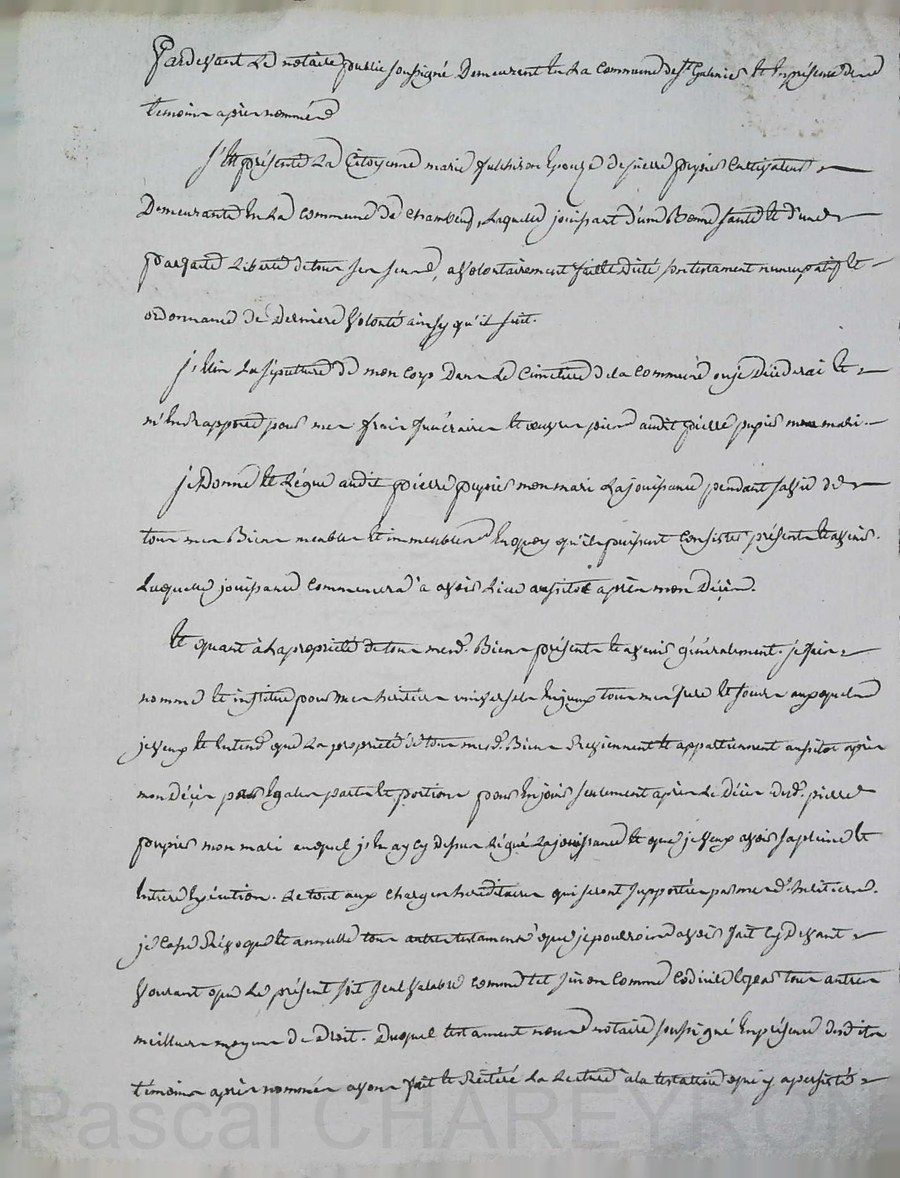 Pardevant le notaire public soussigné Demeurant en la Commune de St Galmier et en présence de
temoins apres nommés
S'est présenté la Citoyenne marie fulchiron Epouze de pierre pupier Cultivateur
Demeurante en la Commune de Chambeuf, laquelle jouissant d'une Bonne santé et d'une
parfaite liberté de tous ses sens, a volontairement fait et dicté son testament nuncupatif et
ordonnance de Derniere volonté ainsy qu'il suit.
j'Elis la sépulture de mon Corps Dans le Cimetiere de la Commune ou je Décéderai et
m'En rapporte pour mes frais funéraires et œuvres pies audit pierre pupier mon mari.
je Donne et Légue audit pierre pupier mon mari la jouissance pendant sa vie de
tous mes Biens meubles et immeubles En quoy qu'ils puissent Consister présents et avenir.
Laquelle jouissance Commencera a avoir lieu aussitot apres mon Décès.
Et quant à la propriété de tous mesd. Biens présents et avenir généralement. je fais
nomme et institue pour mes héritiers universels Egaux tous mes frere et soeurs auxquels
je veux et Entend que la propriété de tous mesd. Biens Reviennent et appartiennent aussitot apres
mon Décès pour Egales parts et portions pour En jouir seulement apres le Décès dud. pierre
pupier mon mari auquel j'En ay cy dessus légué la jouissance et que je veux avoir sa pleine et
Entiere Exécution. Le tout aux charges héréditaires qui seront supportées par mesd. héritiers.
je Casse Révoque et annulle tous autres testaments que je pourrois avoir fait cy Devant
voulant que le présent soit seul valable comme tel sinon Comme Codicile et par tous autres
meilleurs moyens de Droit. Duquel testament nous notaire soussigné En présence desdits
témoins apres nommés avons fait et Réitéré la Lecture a la testatrice qui y a persisté
Pascal CHAREYRON